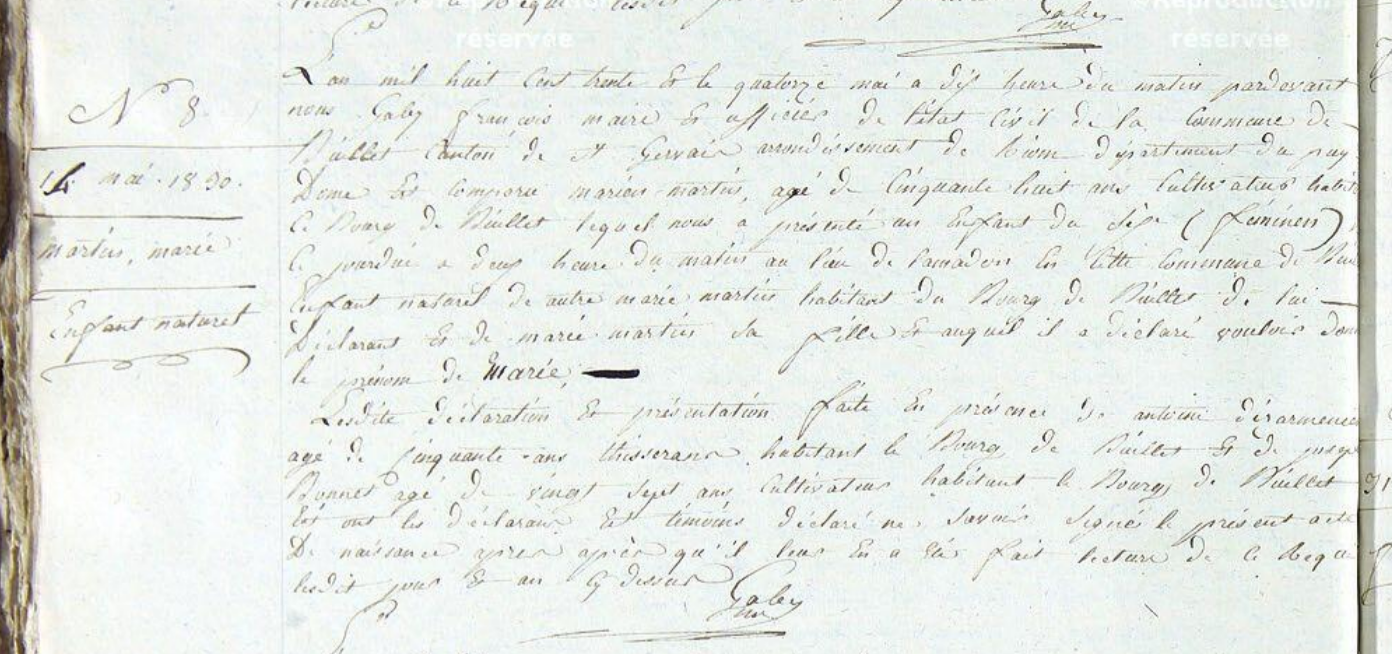 Gaby
L'an mil huit cent trente et le quatorze mai a dix heure du matin pardevant
nous Gaby françois maire et officier de l'état civil de la commune de
Biollet canton de St Gervais arrondissement de Riom département du puy
Dome est comparu martin, agé de Cinquante huit ans cultivateur habit
le Bourg de Biollet lequel nous a présenté un Enfant du sexe (féminin)
ce jourdui a deux heure du matin au lieu de En cette Commune de
Enfant naturel de marie martin habitant du Bourg de Biollet de lui
Déclarant et de marie martin sa fille et auquel il a déclaré vouloir
le prénom de Marie,
Lesdite déclaration et présentation faite En présence de antoine
agé de cinquante ans thisserand habitant le Bourg de Biollet et de
Bonnet agé de vingt sept ans cultivateur habitant le Bourg de Biollet
Et ont les déclarant et témoins déclaré ne savoir signé le présent acte
De naissance apres après qu'il leur En a été fait lecture de ce
lesdit jour et an cy dessus
Gaby
N 8.
14 mai 1830.
martin, marie
Enfant naturel
Reproduction
réservée
réservée